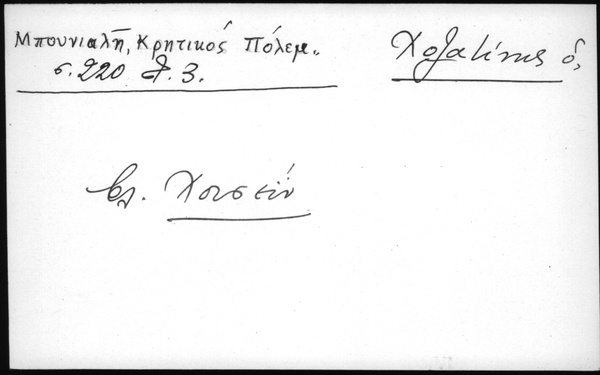 Μπουνιαλῆ, Κρητικός Πόλεμ.
σ. 220 στ. 3.
Χοζαΐνης ὁ,
βλ. Χουσεΐν